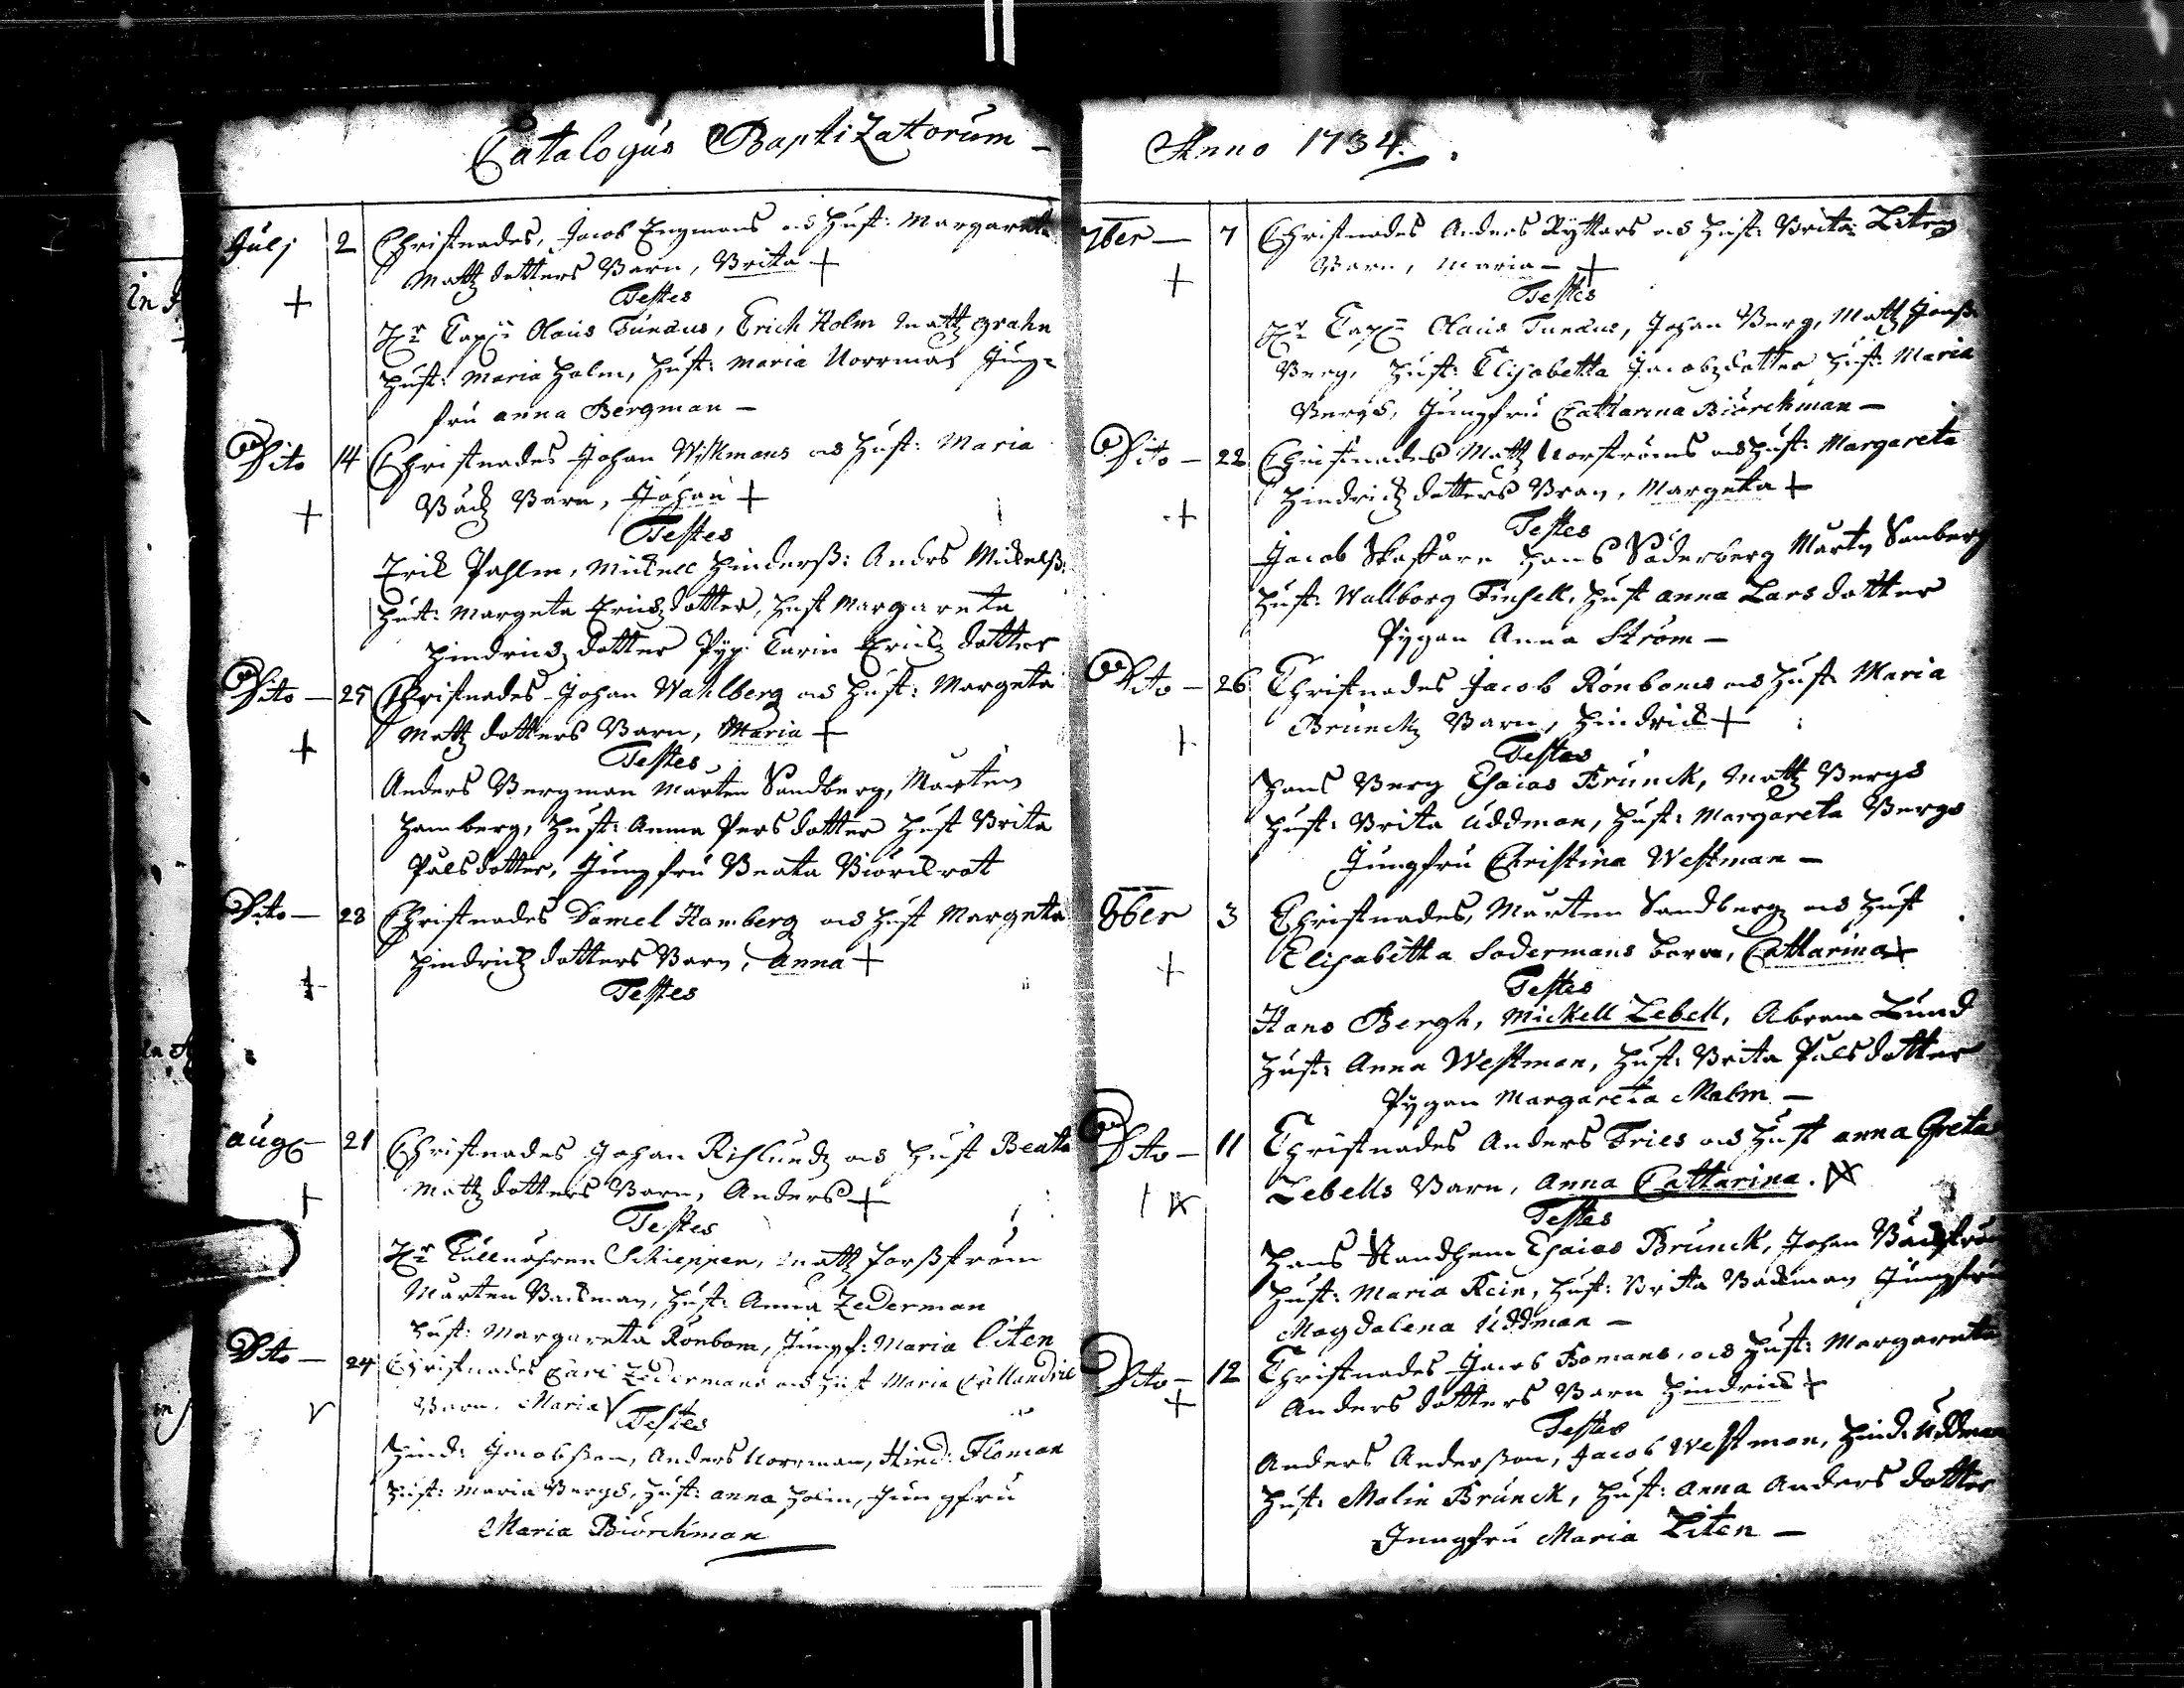 Catalogus Baptizattorum –
Julj 2 Christnades, Jacob Engmans och Hust: Margareta
Mattz dotters Barn, Brita +
Testes
Hr Cap: Olaus Tunæus, Erich Holm Mattz Grahn
Hust: Maria Holm, Hust: Maria Norrmas Jung-
fru anna Bergman –
Dito 14 Christnades Johan Wikmans och Hust: Maria
Bäck Barn, Johan +
Testes
Erik Pahlm, Mickell Hinderß: Anders Mickelß:
Hust: Margeta Ericksdotter, Hust Margareta
Hindricksdotter Pyg. Carin Ericks dotter
Dito – 25 Christnades Johan Wahlberg och Hust: Margeta
Mattz dotters Barn, Maria +
Testes
Anders Bergman Mårten Sandberg, Mårten
Hamberg, Hust: Anna Persdotter Hust Brita
Pålsdotter, Jungfru Beata
Dito – 28 Christnades Daniel Hamberg och Hust Margeta
Hindrickz dotters Barn, Anna +
Testes
aug – 21 Christnades Johan Rislundz och Hust Beata
Mattz dotters Barn, Anders +
Testes
Hr Tullnären Schieppen, Mattz Forßström
Mårten Backman, Hust: Anna Zederman
Hust: Margareta Rönbom, Jungf: Maria Liten
Dito – 24 Christnades Carl Zedermans och Hust Maria
Barn. Maria V
Testes
Hind: Jacobsson, Anders Norrman, Hind: Floman
Hust: Maria Bergs, Hust: anna Holm, Jungfru
Maria Biörckman
Anno 1734.
7ber – 7 Christnades Anders Ryttars och Hust: Brita Liten
Barn, Maria – +
Testes
Hr Cap: Olaus Tunæus, Johan Berg, Mattz Jonß:
Berg, Hust: Elisabetta Jacobzdotter Hust: Maria
Bergs, Jungfru Cattarina Biörckman –
Dito – 22 Christnades Mattz Norströms och Hust: Margareta
Hindrickz dotters Bran, Margeta +
Testes
Jacob Skaffare Hans Söderberg Mårtn Sanberg
Hust: Wallborg Finsell, Hust anna Lars dotter
Pygan Anna Ström –
Dito – 26 Christnades Jacob Rönboms och Hust: Maria
Brunckz Barn, Hindrick +
Testes
Hans Berg Esaias Brunck, Mattz Bergs
Hust: Brita Uddman, Hust: Margareta Bergs
Jungfru Christina Westman –
8ber 3 Christnades, Mårten Sandberg och Hust
Elisabetta Sodermans barn, Cattarina +
Testes
Hans Bergh, Mickell Lebell, Abram Lund
Hust: Anna Westman, Hust: Brita Pålsdotter
Pygan Margareta Malm –
Dito – 11 Christnades Anders Fries och Hust anna Greta
Lebells Barn, Anna Cattarina.
Testes
Hans Standhem Esaias Brunck, Johan Bäckström
Hust: Maria Rein, Hust: Brita Backman Jungfru
Magdalena Uddman –
Dito – 12 Christnades Jacob Bomans, och Hust: Margareta
Anders dotters Barn Hindrick +
Testes
Anders Anderßon, Jacob Westman, Hind: Uddman
Hust: Malin Brunck, Hust: Anna Anders dotter
Jungfru Maria Liten –